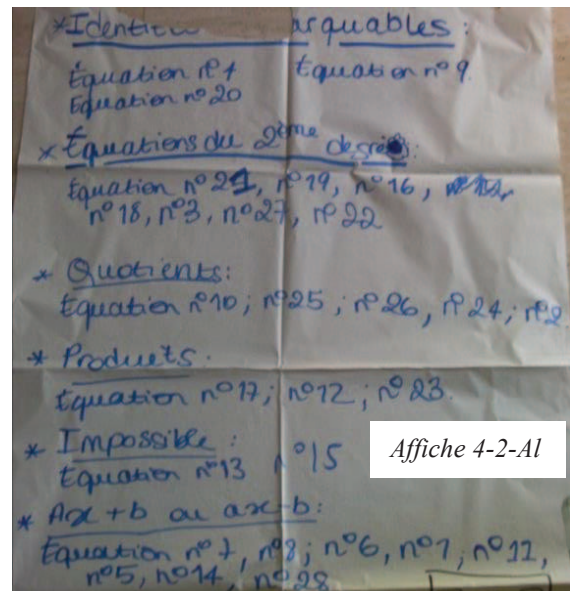 *Identit arquables :
Équation n°7 Équation n°9
Equation n°20
* Équations du 2ème degré :
Équation n°21, n°19, n°16,
n°18, n°3, n°27, n°22
* Quotients:
Equation n°10; n°25; n°26, n°24; n°2
* Produits:
Equation n°17; n°12; n°23.
* Impossible :
Equation n°13 n°15
Affiche 4-2-Al
* Ax + b ou ax-b:
Équation n°7, n°8; n°6, n°1; n°11,
n°5, n°14, n°28